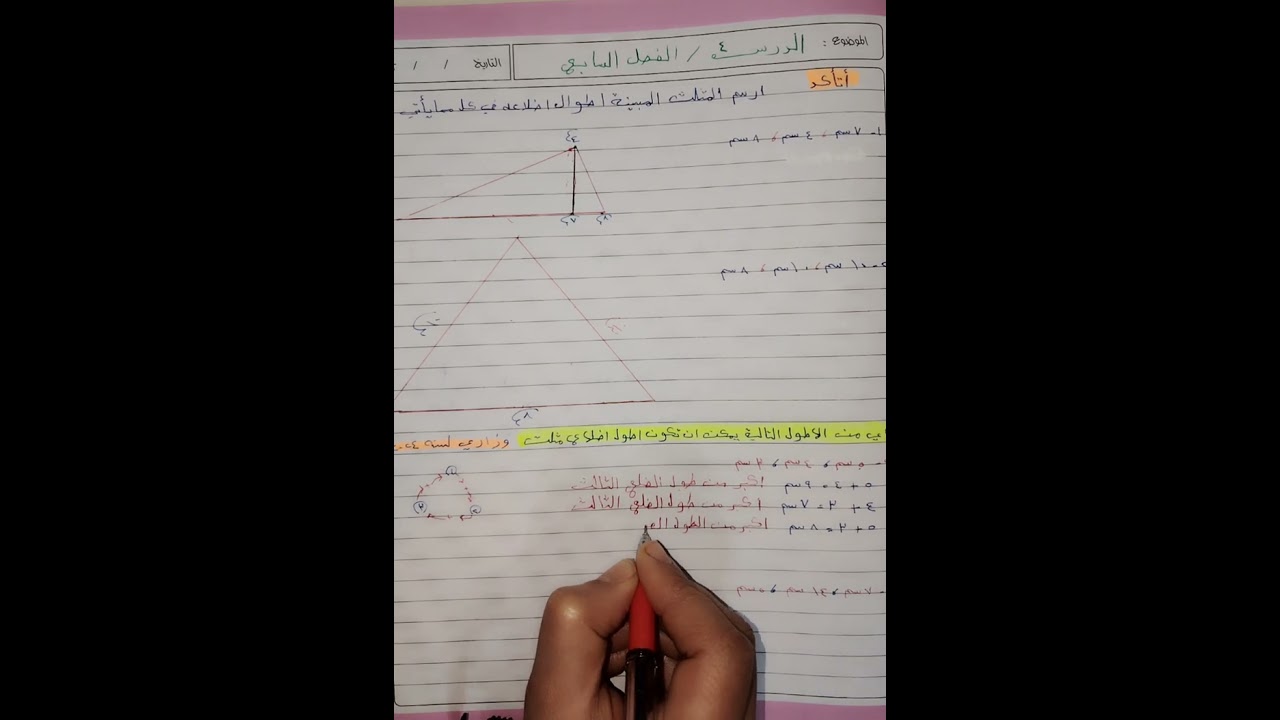 الموضوع : الدرس ٤ / الفصل السابع
التاريخ / /
أتأكد
ارسم المثلث المبينة اطوال اضلاعه في كل مما يأتي
١- ٧ سم ، ٤ سم ، ٨ سم
١٠ سم ، ١٠ سم ، ٨ سم
اي من الاطول التالية يمكن ان تكون اطول اضلاع مثلث وزاري لسنه
٥ سم ، ٤ سم ، ٣ سم
٥ + ٤ = ٩ سم اكبر من طول الضلع الثالث
٤ + ٣ = ٧ سم اكبر من طول الضلع الثالث
٥ + ٣ = ٨ سم اكبر من الطول
٧ سم ، ١٤ سم ، ٥ سم